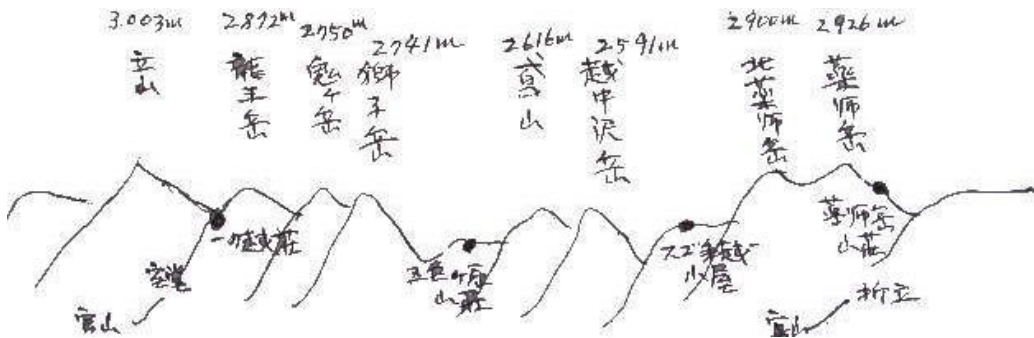 3.003m
2872m
2750m
2741m
2616m
2591m
2900m
2926m
立山
龍王岳
鬼ヶ岳
獅子岳
鳶山
越中沢岳
北薬師岳
薬師岳
一ノ越山荘
五色ヶ原
山荘
スゴ乗越
小屋
薬師岳
山荘
室堂
富山
富山
折立